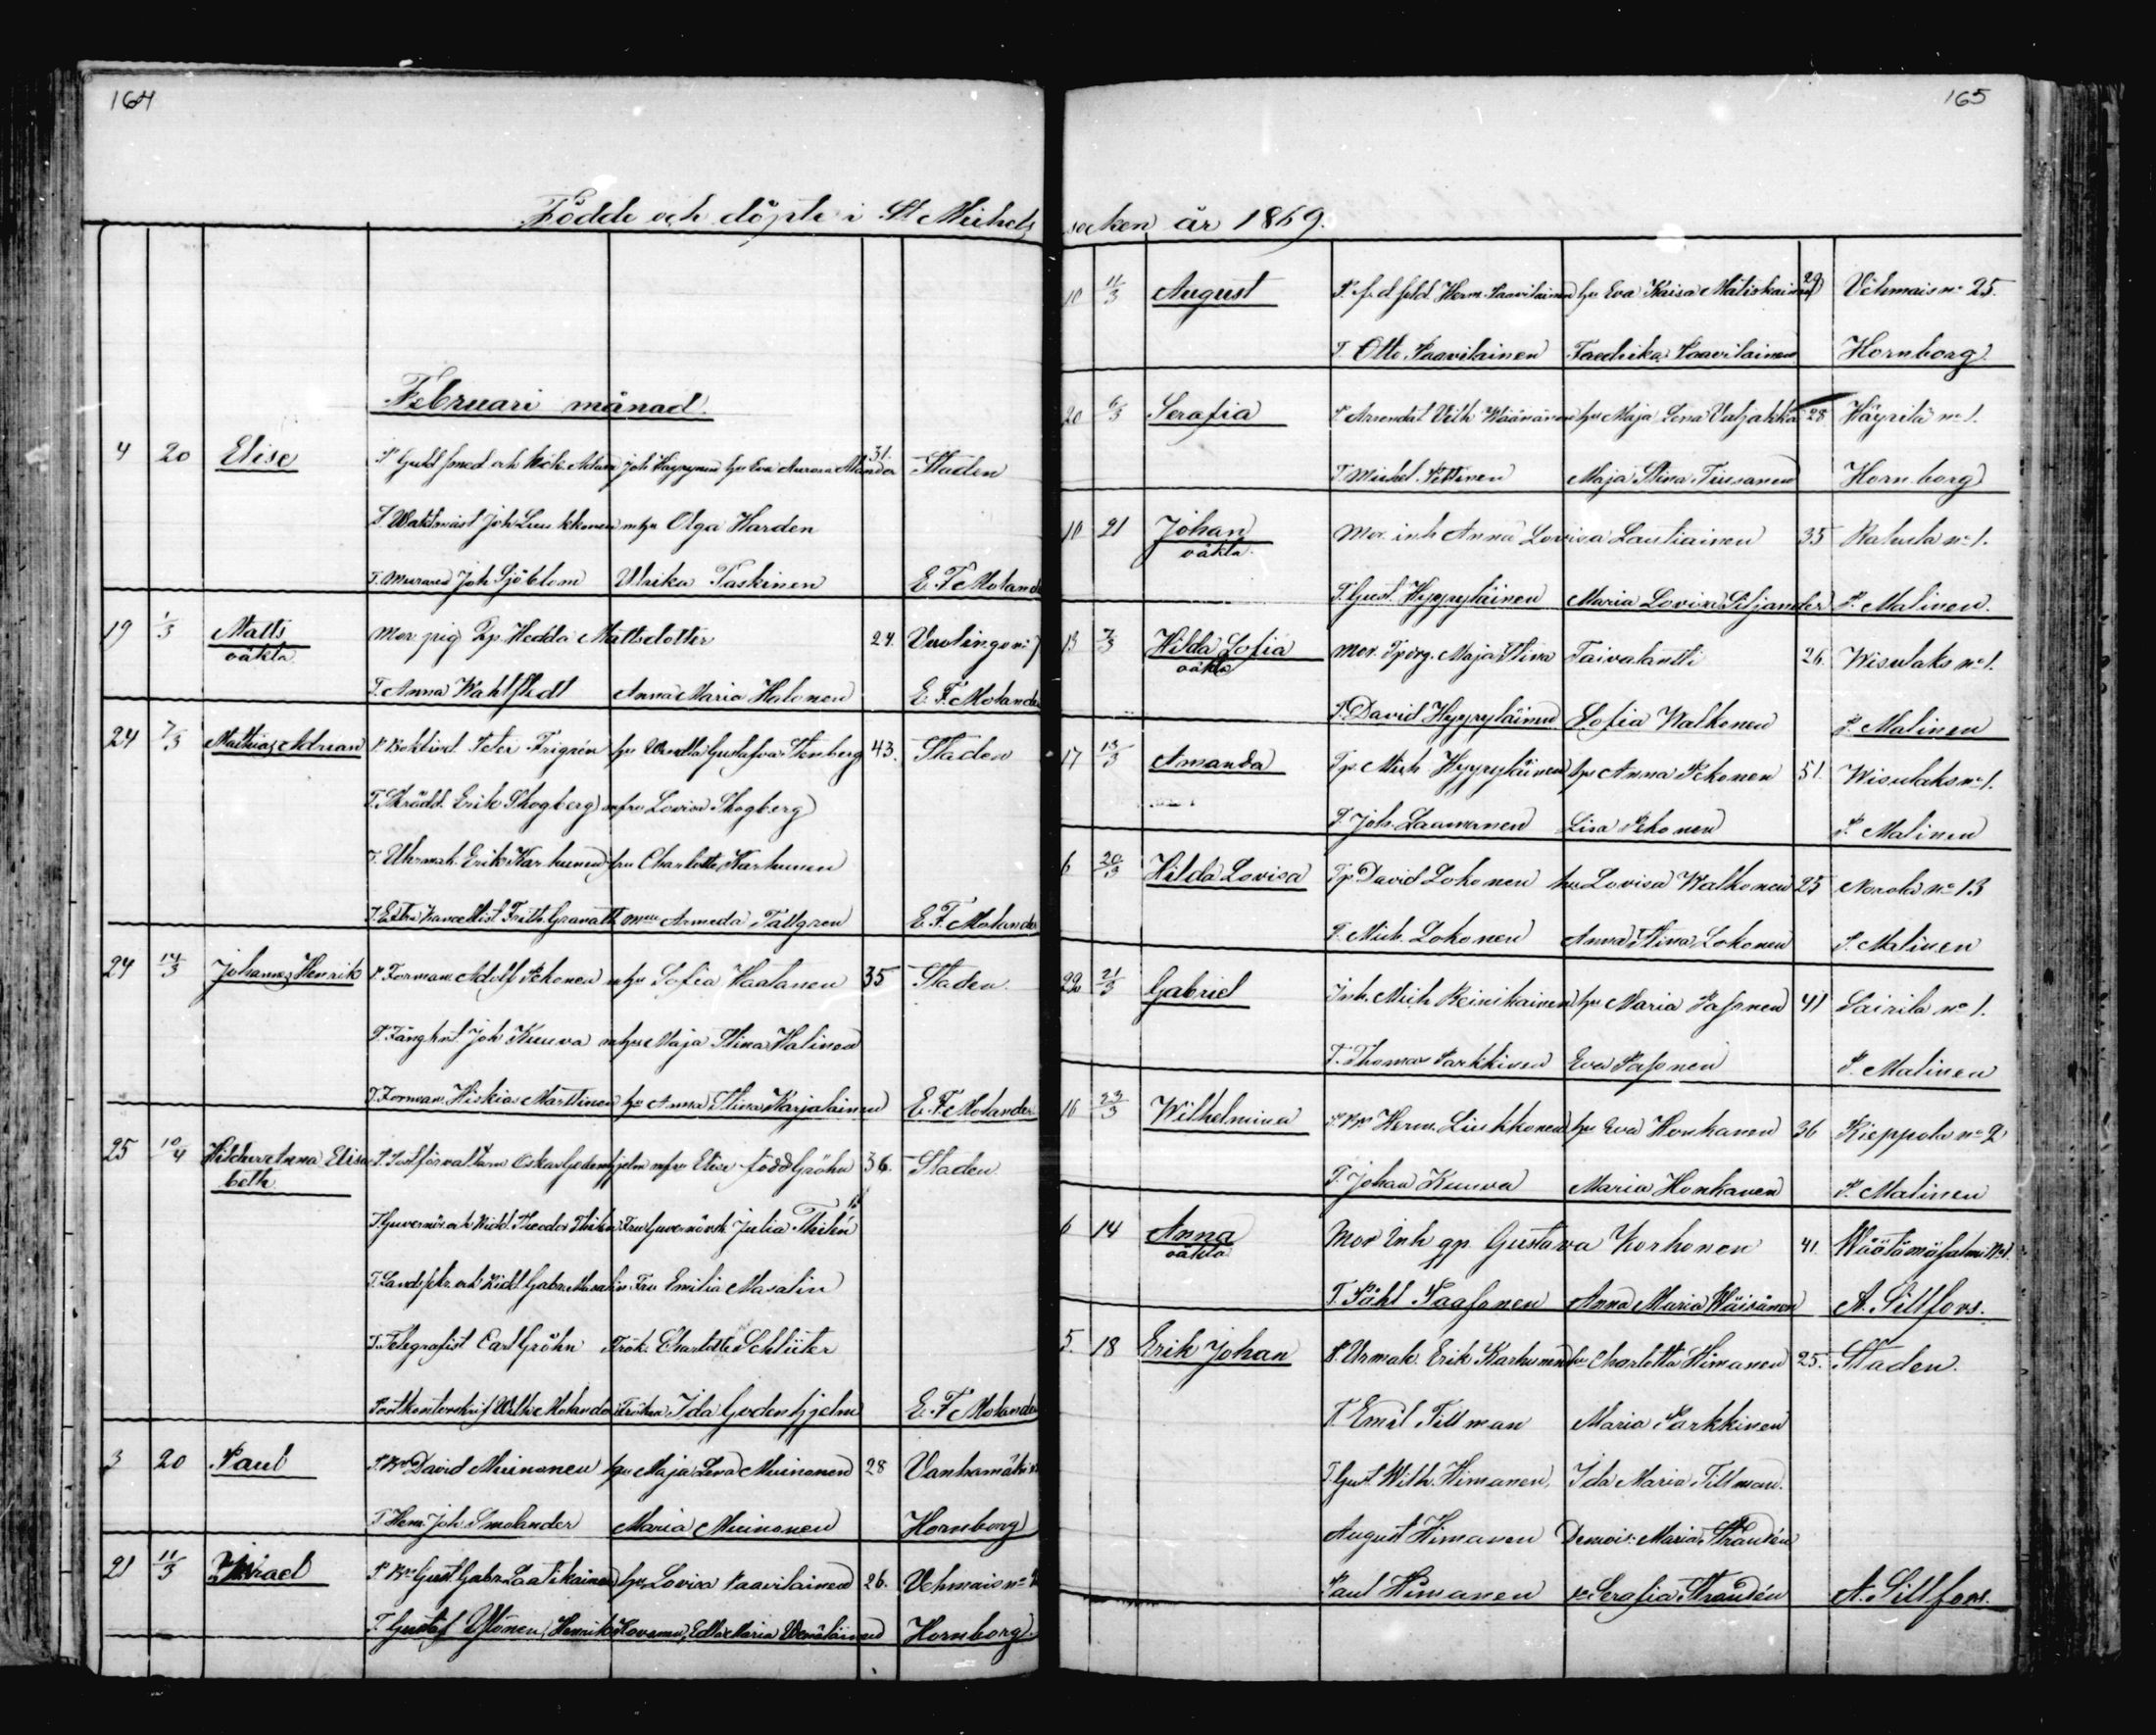 164
Födde och döpte i St Michels
Februari månad.
4 20 Elise P. Guldsmed och Adam Joh Häyrynen hu Eva Aurora Alander 31. Staden
T. Waktmäst Joh Luukkonen m hu Olga Harden
T. Murared Joh Sjöblom Ulrika Paskinen E. F. Molander
19 1/3 Matts Mor pig Lp. Hedda Mattsdotter 24. Vuolingo n: 7
oäkta
T. Anna Wahlstedt Anna Maria Halonen E. F. Molander
24 7/3 Mathias Adrian P. Peter Frigrén hu Gustafva Stenberg 43. Staden
T. Skrädd. Erik Skogberg m fru Lovisa Skogberg
T. Uhrmak. Erik Karhunen fru Charlotta Karhunen
T. Extra Kancellist Frith. Granath Armeda Tallgren E. F. Molander
24 14/3 Johannes Henrik P. Forman Adolf Pekonen m hu Sofia Haalanen 35 Staden.
T. Joh Kuuva m hu Maja Stina Halinen
T. Forman. Hiskias Marttinen hu Anna Stina Karjalainen E. F. Molander
25 10/4 Anna Elisa- P. Postförvaltaren Oskar Godenhjelm m fru Elise född Gröhn 36. Staden
beth
T. Guvernör och Ridd. Theodor Thilén Fru Guvernörsk Julia Thilén
T. och Ridd. Gabr. Masalin Fru Emilia Masalin
T. Telegrafist Carl Gröhn Frök. Charlotte Schlüter
Postkontorskrif Wilh Molander Fröken Ida Godenhjelm E. F. Molander
3 20 Paul P. Bn David Muinonen hu Maja Lena Muinonen 28 Vanhamäki
T. Henr. Joh. Smolander Maria Muinonen Hornborg
21 11/3 Israel P. Bn Gust. Gabr. Laatikainen hu Lovisa Paavilainen 26. Vehmais no
T. Gustaf Ylönen, Henrik Hovanen, Edla Maria Hornborg.
165
socken år 1869.
10 11/3 August P. Herm. Paavilainen hu Eva Kaisa Matiskainen 29 Vehmais no 25.
T. Otto Paavilainen Fredrika Paavilainen Hornborg
20 6/3 Serafia P. Arrendat Vilh Väänänen hu Maja Lena Valjakka 28 Häyrilä no 1.
T. Michel Pettinen Maja Stina Tiusanen Hornborg
10 21 Johan Mor. inh Anna Lovisa Lautiainen 35 Rahula no 1.
oäkta.
T. Gust. Hyyryläinen Maria Lovisa Siljander P. Malinen.
13 7/3 Hilda Sofia Mor. Maja Stina Taivalantti 26. Wisulaks no 1.
oäkta
T. David Hyyryläinen Sofia Walkonen P. Malinen
17 13/3 Amanda Tp. Mich Hyyryläinen hu Anna Pekonen 51. Wisulaks no 1.
T. Joh. Laamanen Lisa Pekonen P. Malinen
6 20/3 Hilda Lovisa Tp David Lokonen hu Lovisa Walkonen 25 Norola no 13
T. Mich. Lokonen Anna Stina Lokonen P. Malinen
22 21/3 Gabriel Inh. Mich Reinikainen hu Maria Pasonen 41 Sairila no 1.
T. Thomas Parkkinen Eva Pasonen P. Malinen
16 23/3 Wilhelmina P. Bn Herm. Liukkonen hu Eva Honkanen 36 Rieppola no 2
T. Johan Kuuva Maria Honkanen P. Malinen
6 14 Anna Mor Inh gp. Gustava Korhonen 41. No 1.
oäkta
T. Påhl Paasonen Anna Maria Wäisänen A. Sillfors.
5. 18 Erik Johan P. Urmak Erik Karhunen hu Charlotta Himanen 25. Staden.
T. Emil Tillman Maria Parkkinen
T. Gust Wilh. Himanen, Ida Maria Tillman.
August Himanen Demois: Maria Strandén
Paul Himanen Serafia Strandén A. Sillfors.